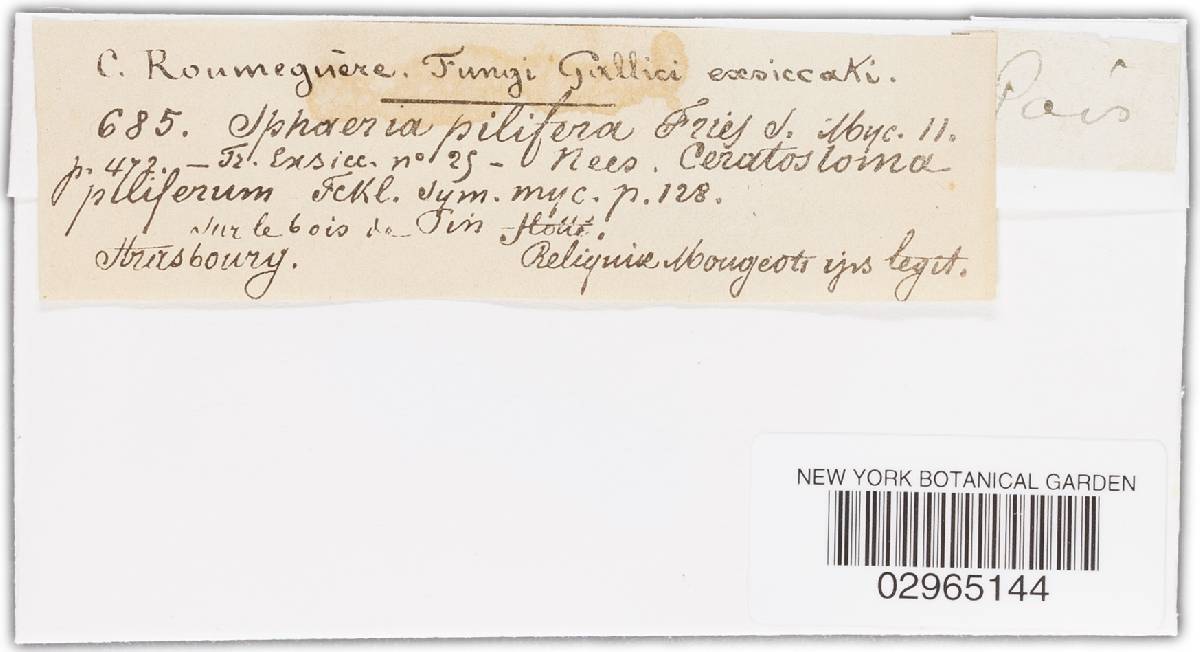 C. Roumeguère. Fungi Gallici exsiccati.
685. Sphaeria pilifera Fries S. Myc. II.
p. 472. — Fr. Exsicc. nº 25 — Nees. Ceratostoma
piliferum Fckl. Sym. myc. p. 128.
Sur le bois de Pin
Strasbourg. Reliquiæ Mougeoti ips legit.
NEW YORK BOTANICAL GARDEN
02965144